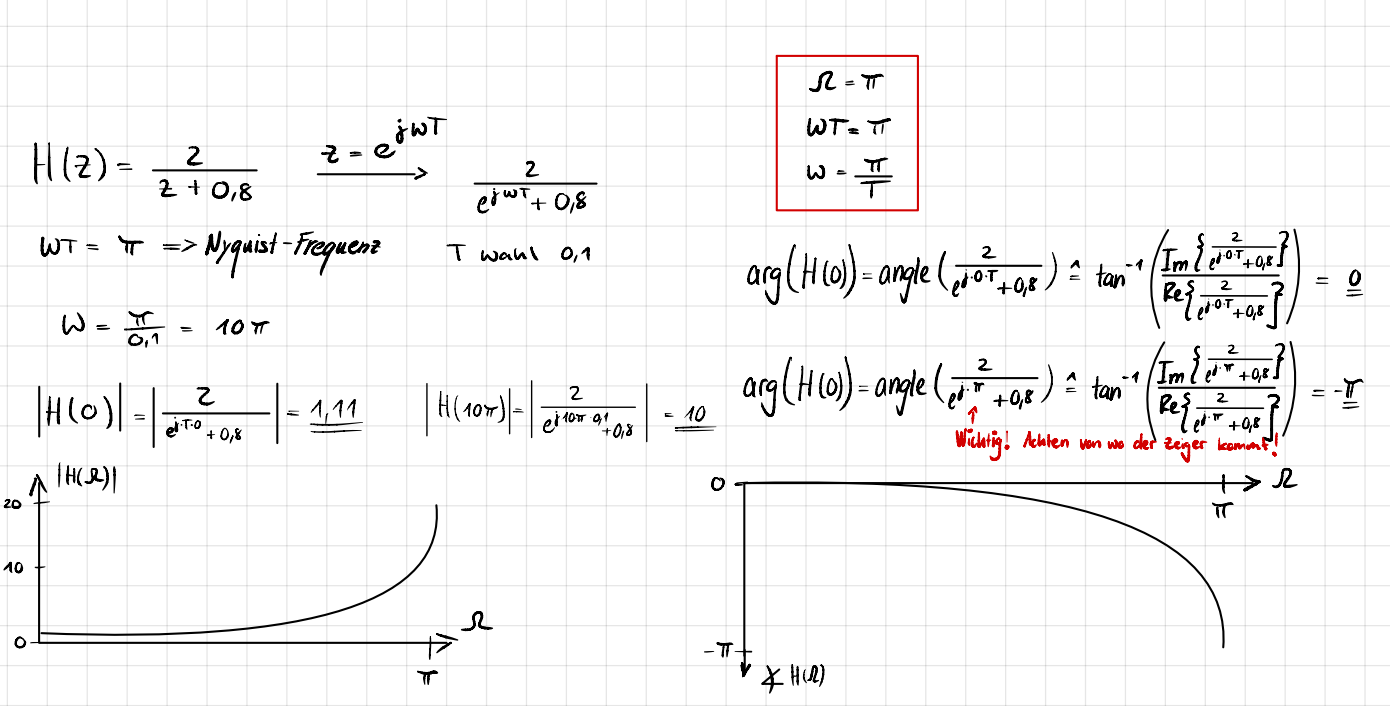 H(z) = 2 / (z + 0,8)   z = e^(jωT) →   2 / (e^(jωT) + 0,8)
ωT = π => Nyquist-Frequenz   T wahl 0,1
ω = π / 0,1 = 10π
|H(0)| = | 2 / (e^(j·T·0) + 0,8) | = 1,11   |H(10π)| = | 2 / (e^(j10π·0,1) + 0,8) | = 10
|H(Ω)|
20
10
0
Ω
π
Ω = π
ωT = π
ω = π / T
arg(H(0)) = angle( 2 / (e^(j·0·T) + 0,8) ) ≙ tan^-1( Im{ 2 / (e^(j·0·T) + 0,8) } / Re{ 2 / (e^(j·0·T) + 0,8) } ) = 0
arg(H(0)) = angle( 2 / (e^(j·π) + 0,8) ) ≙ tan^-1( Im{ 2 / (e^(j·π) + 0,8) } / Re{ 2 / (e^(j·π) + 0,8) } ) = -π
↑
Wichtig! Achten von wo der Zeiger kommt!
0
Ω
π
-π
∡ H(Ω)